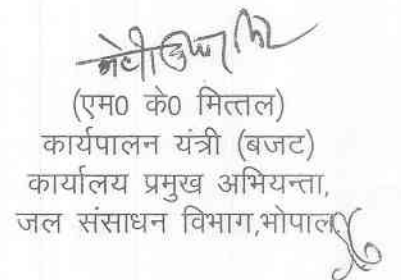 (एम0 के0 मित्तल)
कार्यपालन यंत्री (बजट)
कार्यालय प्रमुख अभियन्ता,
जल संसाधन विभाग,भोपाल